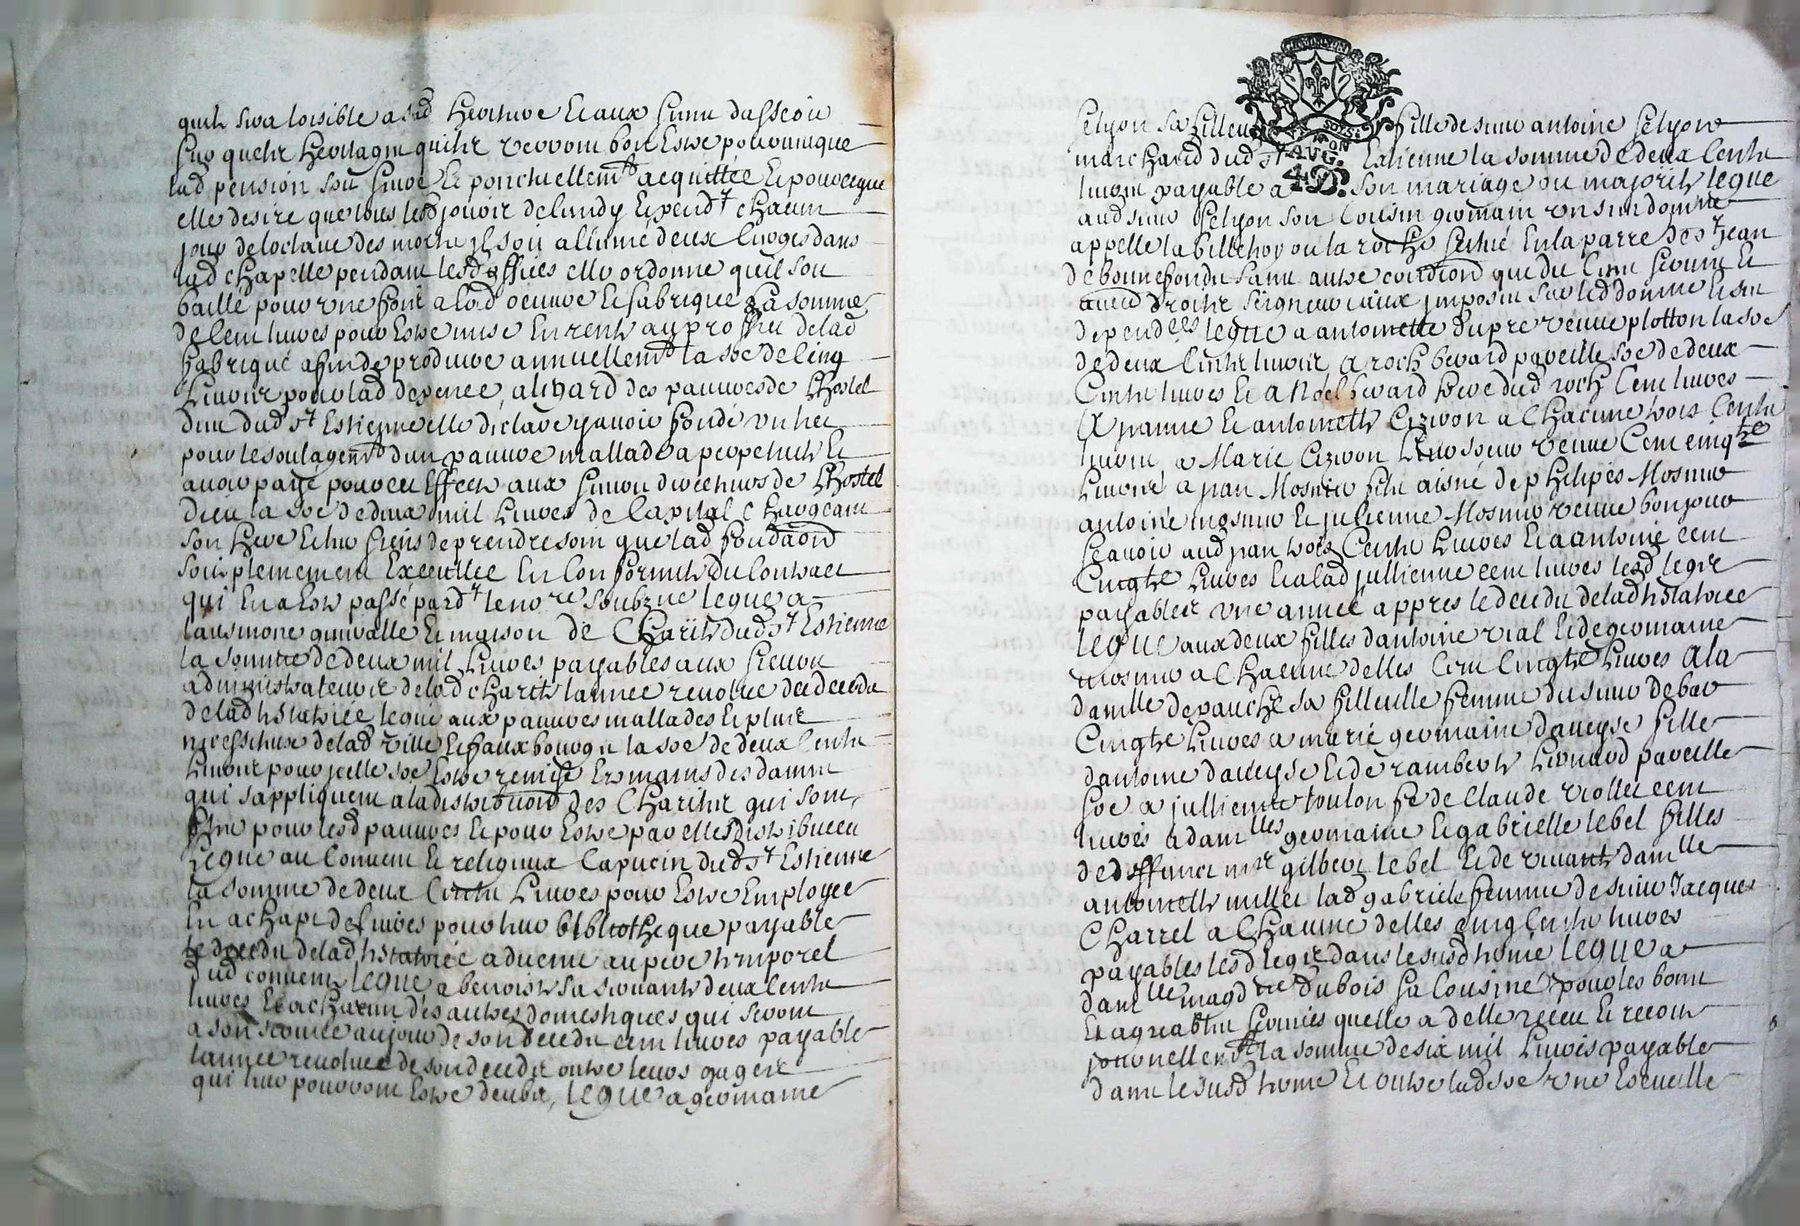 quils sera loisible a sad heritiere et aux siens dasseoir
sur quels heritages quils verront bon estre pourveu que
lad pension soit seure et ponctuellemt acquittée et pource que
elle desire que tous lesd jouir de lundy et pendt chacun
jour de loctave des morts il soit allumé deux cierges dans
lad chapelle pendant lesd offices elle ordonne quil soit
baillé pour une fois a lad oeuvre et fabrique la somme
de cent livres pour estre mise en rente au proffit de lad
fabrique afin de produire annuellemt la soe de cinq
livres pour lad depence, a legard des pauvres de lhostel
dieu dud st Estienne elle declare y avoir fondé un lict
pour le soulagemt dun pauvre mallade a perpetuité et
avoir payé pour cet effect aux sieurs directeurs de lhostel
dieu la soe de deux mil livres de capital chargeant
son here et les siens de prendre soin que lad fondaõn
soit plainement executtée en conformité du contract
qui en a este passé pardt le nore soubzné legue a
laumone generalle et maison de Charité dud st Estienne
la somme de deux mil livres payables aux sieurs
administrateurs de lad charité lannée revolue du deceds
de lad testatrice, legue aux pauvres mallades et plus
necessiteux de lad ville et fauxbourgs la soe de deux cents
livres pour icelle soe estre remise ez mains des dames
qui sappliquent a la distribution des charités qui sont
pour lesd pauvres et pour estre par elles distribuées
legue au couvent et religieux capucins dud st Estienne
la somme de deux cents livres pour estre employée
en achapt de livres pour leur bibliotheque payable
le deceds de lad testatrice advenu au pere temporel
dud couvent, legue a benoiste sa servante deux cents
livres et a chacun des autres domestiques qui seront
a son service au jour de son deceds cent livres payable
lannée revolue de son deceds outre leurs gages
qui leur pourront estre deubs, legue a germaine
pelyon sa filleule fille de sieur antoine pelyon
marchand dud st Estienne la somme de deux cents
livres payable a son mariage ou majorité legue
aud sieur pelyon son cousin germain un sien domaine
appellé la billehoy ou la roche scitué en la parre de st jean
de bonnefonds sans autre condition que du cens servis et
autres droits seigneuriaux imposés sur led domaine et ses
dependces legue a antoinette dupre veuve plotton la soe
de deux cents livres, a roch berard pareille soe de deux
cents livres et a Noël berard frere dud roch cent livres
a jeanne et antoinette cizeron a chacune trois cents
livres a Marie cizeron leur soeur veuve cent cinqte
livres a jean Mosnier fils aisné de philipes Mosnier
antoine mosnier et julienne Mosnier veuve bonjour
scavoir aud jean trois cents livres et a antoine cent
cinqte livres et a lad jullienne cent livres lesd legs
payables une année appres le deceds de lad testatrice
legue aux deux filles dantoine vial et de germaine
mosnier a chacune delles cent cinqte livres a la
damlle depauche sa filleulle femme du sieur debar
cinqte livres a marie germaine daveyse fille
dantoine daveyse et de ramberte lionard pareille
soe a jullienne toulon fe de claude viollet cent
livres a damlles germaine et gabrielle lebel filles
de deffunct mre gilbert lebel et de vivante damlle
antoinette millet lad gabrielle femme de sieur Jacques
Charrel a chacune delles cinq cents livres
payables lesd legs dans le susd terme legue a
damlle magdne dubois sa cousine pour les bons
et agreables services quelle a delle receu et recoit
journellemt la somme de six mil livres payable
dans le susd terme et outre lad soe une escuelle